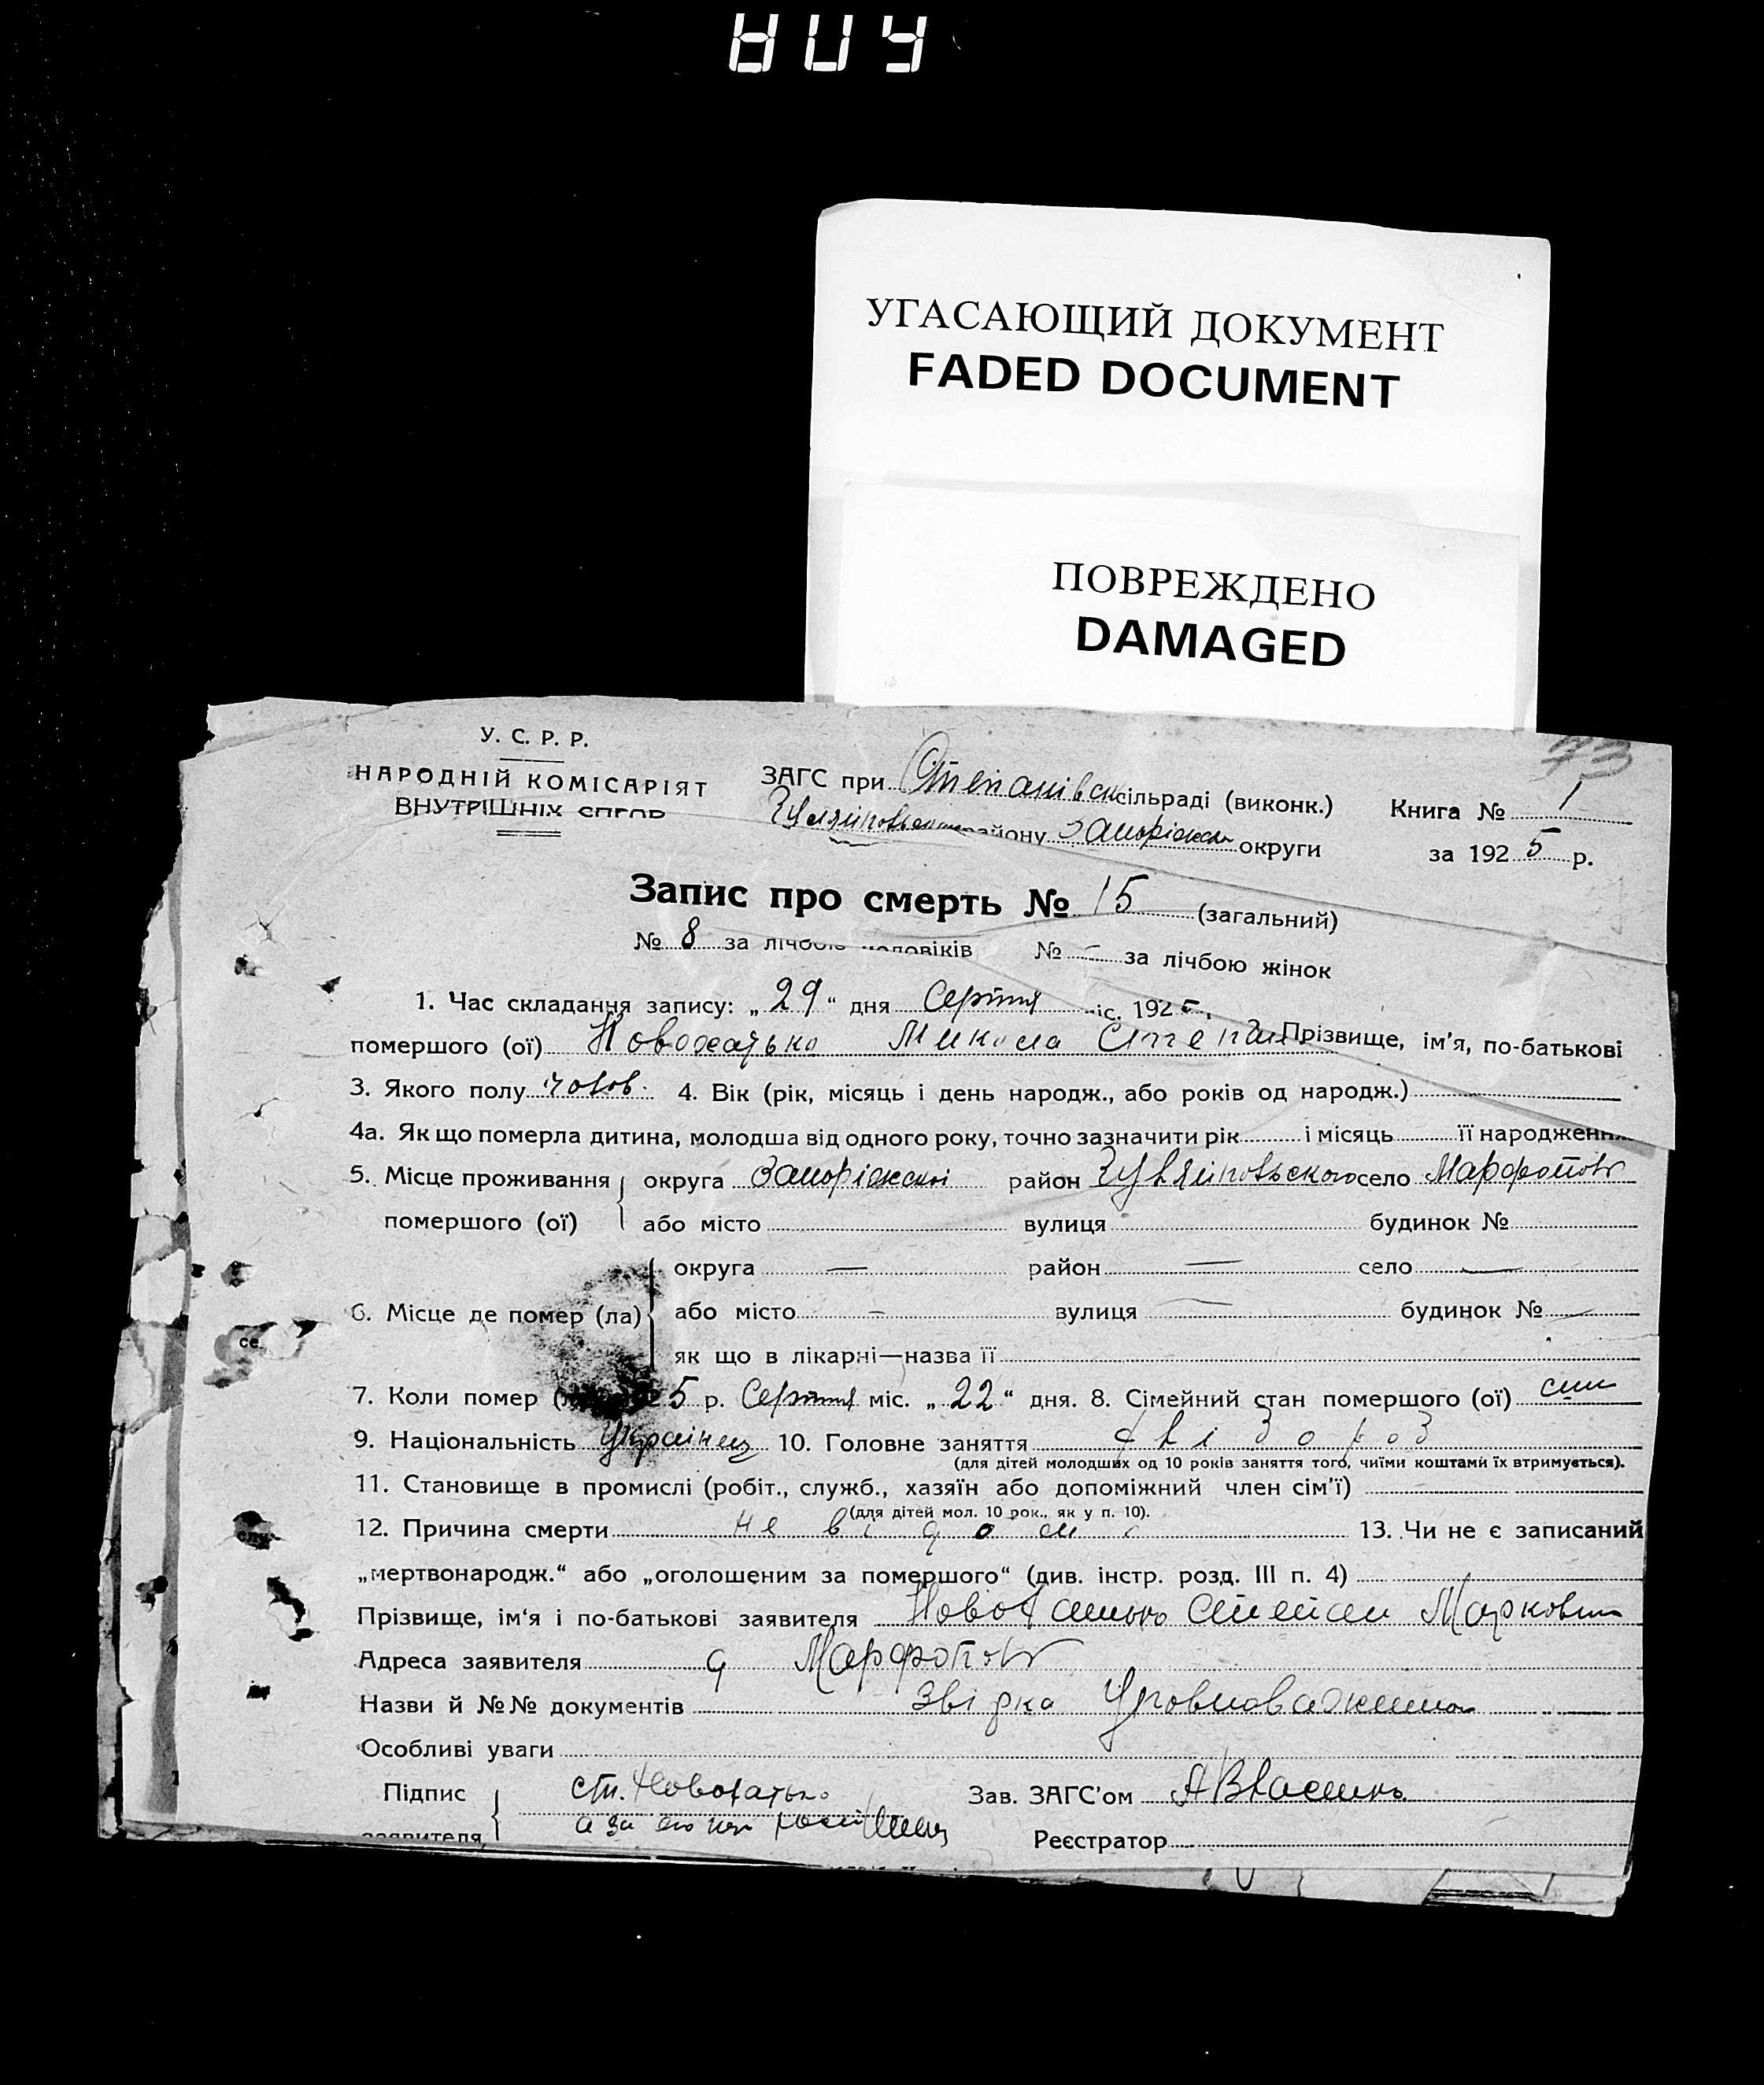 УГАСАЮЩИЙ ДОКУМЕНТ
FADED DOCUMENT
ПОВРЕЖДЕНО
DAMAGED
73
У. С. Р. Р.
НАРОДНІЙ КОМІСАРІЯТ
ВНУТРІШНІХ СПРАВ
ЗАГС при Степанівск сільраді (виконк.)
району Запоріжск округи
Книга № 1
за 1925 р.
Запис про смерть № 15 (загальний)
№ 8 за лічбою чоловіків № - за лічбою жінок
1. Час складання запису: „29“ дня Серпня міс. 1925
Прізвище, ім'я, по-батькові
помершого (ої) Новохатько Микола Степан
3. Якого полу чолов. 4. Вік (рік, місяць і день народж., або років од народж.)
4а. Як що померла дитина, молодша від одного року, точно зазначити рік і місяць її народження
5. Місце проживання округа Запоріжской район село Марфопол
помершого (ої) або місто вулиця будинок №
округа — район — село —
6. Місце де помер (ла) або місто - вулиця — будинок № —
як що в лікарні—назва її
7. Коли помер 5 р. Серпня міс. „22“ дня. 8. Сімейний стан помершого (ої) син
9. Національність Українец 10. Головне заняття
(для дітей молодших од 10 років заняття того, чиїми коштами їх втримується).
11. Становище в промислі (робіт., служб., хазяїн або допоміжний член сім'ї)
(для дітей мол. 10 рок., як у п. 10).
12. Причина смерти не відомо 13. Чи не є записаний
„мертвонародж.“ або „оголошеним за помершого“ (див. інстр. розд. III п. 4)
Прізвище, ім'я і по-батькові заявителя Новохатько Степан Маркович
Адреса заявителя Марфопол
Назви й №№ документів Звірка Уповноваженно
Особливі уваги
Підпис Ст. Новохатько Зав. ЗАГС'ом
заявителя Реєстратор